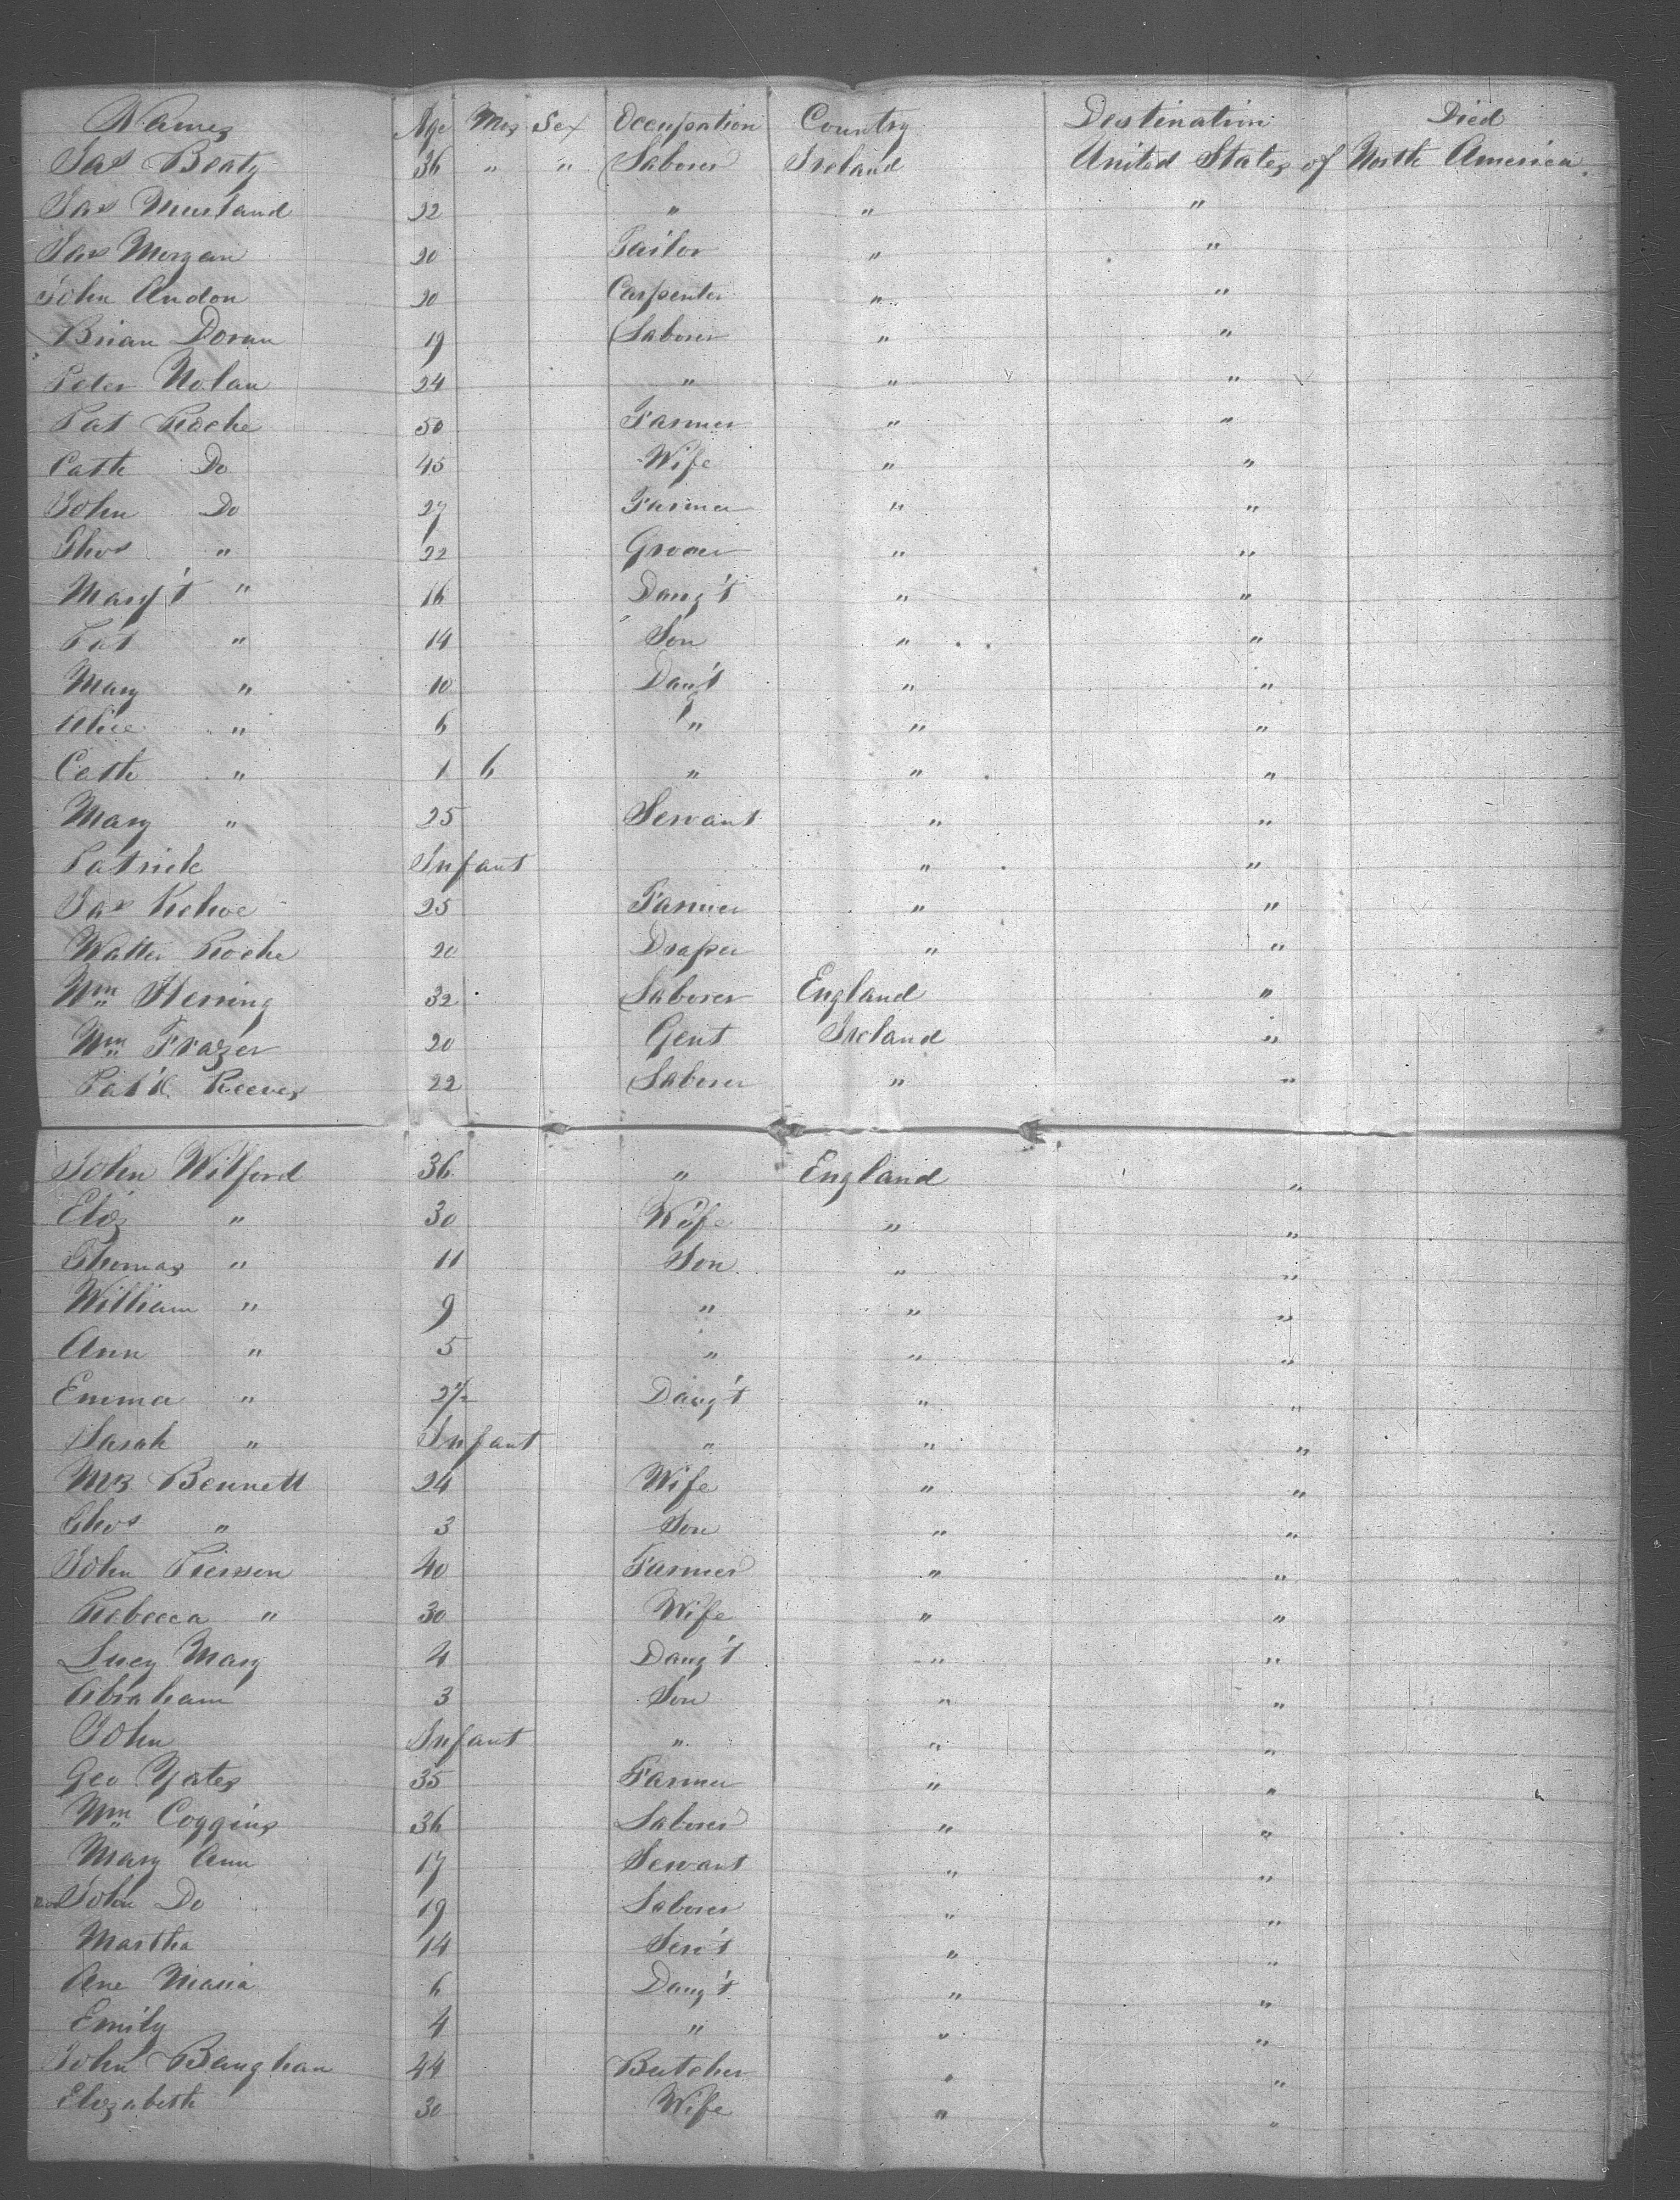 Names Age Mos Sex Occupation Country Destination Died
Jas Beaty 36 " " Laborer Ireland United States of North America
Jas Murland 32 " " "
Jas Morgan 20 Tailor " "
John Andon 20 Carpenter " "
Brian Doran 19 Laborer " "
Peter Nolan 24 " " "
Pat Roche 50 Farmer " "
Cath Do 45 Wife " "
John Do 27 Farmer " "
Thos " 22 Grocer " "
Marg't " 16 Daug't " "
Pat " 14 Son " "
Mary " 10 Daug't " "
Alice " 6 " " "
Cath " 1 6 " " "
Mary " 25 Servant " "
Patrick Infant " "
Jas Kehoe 25 Farmer " "
Walter Roche 20 Draper " "
Wm Herring 32 Laborer England "
Wm Frazer 20 Gent Ireland "
Pat'k Reeves 22 Laborer " "
John Wilford 36 " England "
Eliz " 30 Wife " "
Thomas " 11 Son " "
William " 9 " " "
Ann " 5 " " "
Emma " 2 1/2 Daug't " "
Sarah " Infant " " "
Mrs Bennett 24 Wife " "
Thos " 3 Son " "
John Pierson 40 Farmer " "
Rebecca " 30 Wife " "
Lucy Mary 4 Daug't " "
Abraham 3 Son " "
John Infant " " "
Geo Yates 35 Farmer " "
Wm Coggins 36 Laborer " "
Mary Ann 17 Servant " "
John Do 19 Laborer " "
Martha 14 Serv't " "
Ane Maria 6 Daug't " "
Emily 4 " " "
John Baughan 44 Butcher " "
Elizabeth 30 Wife " "